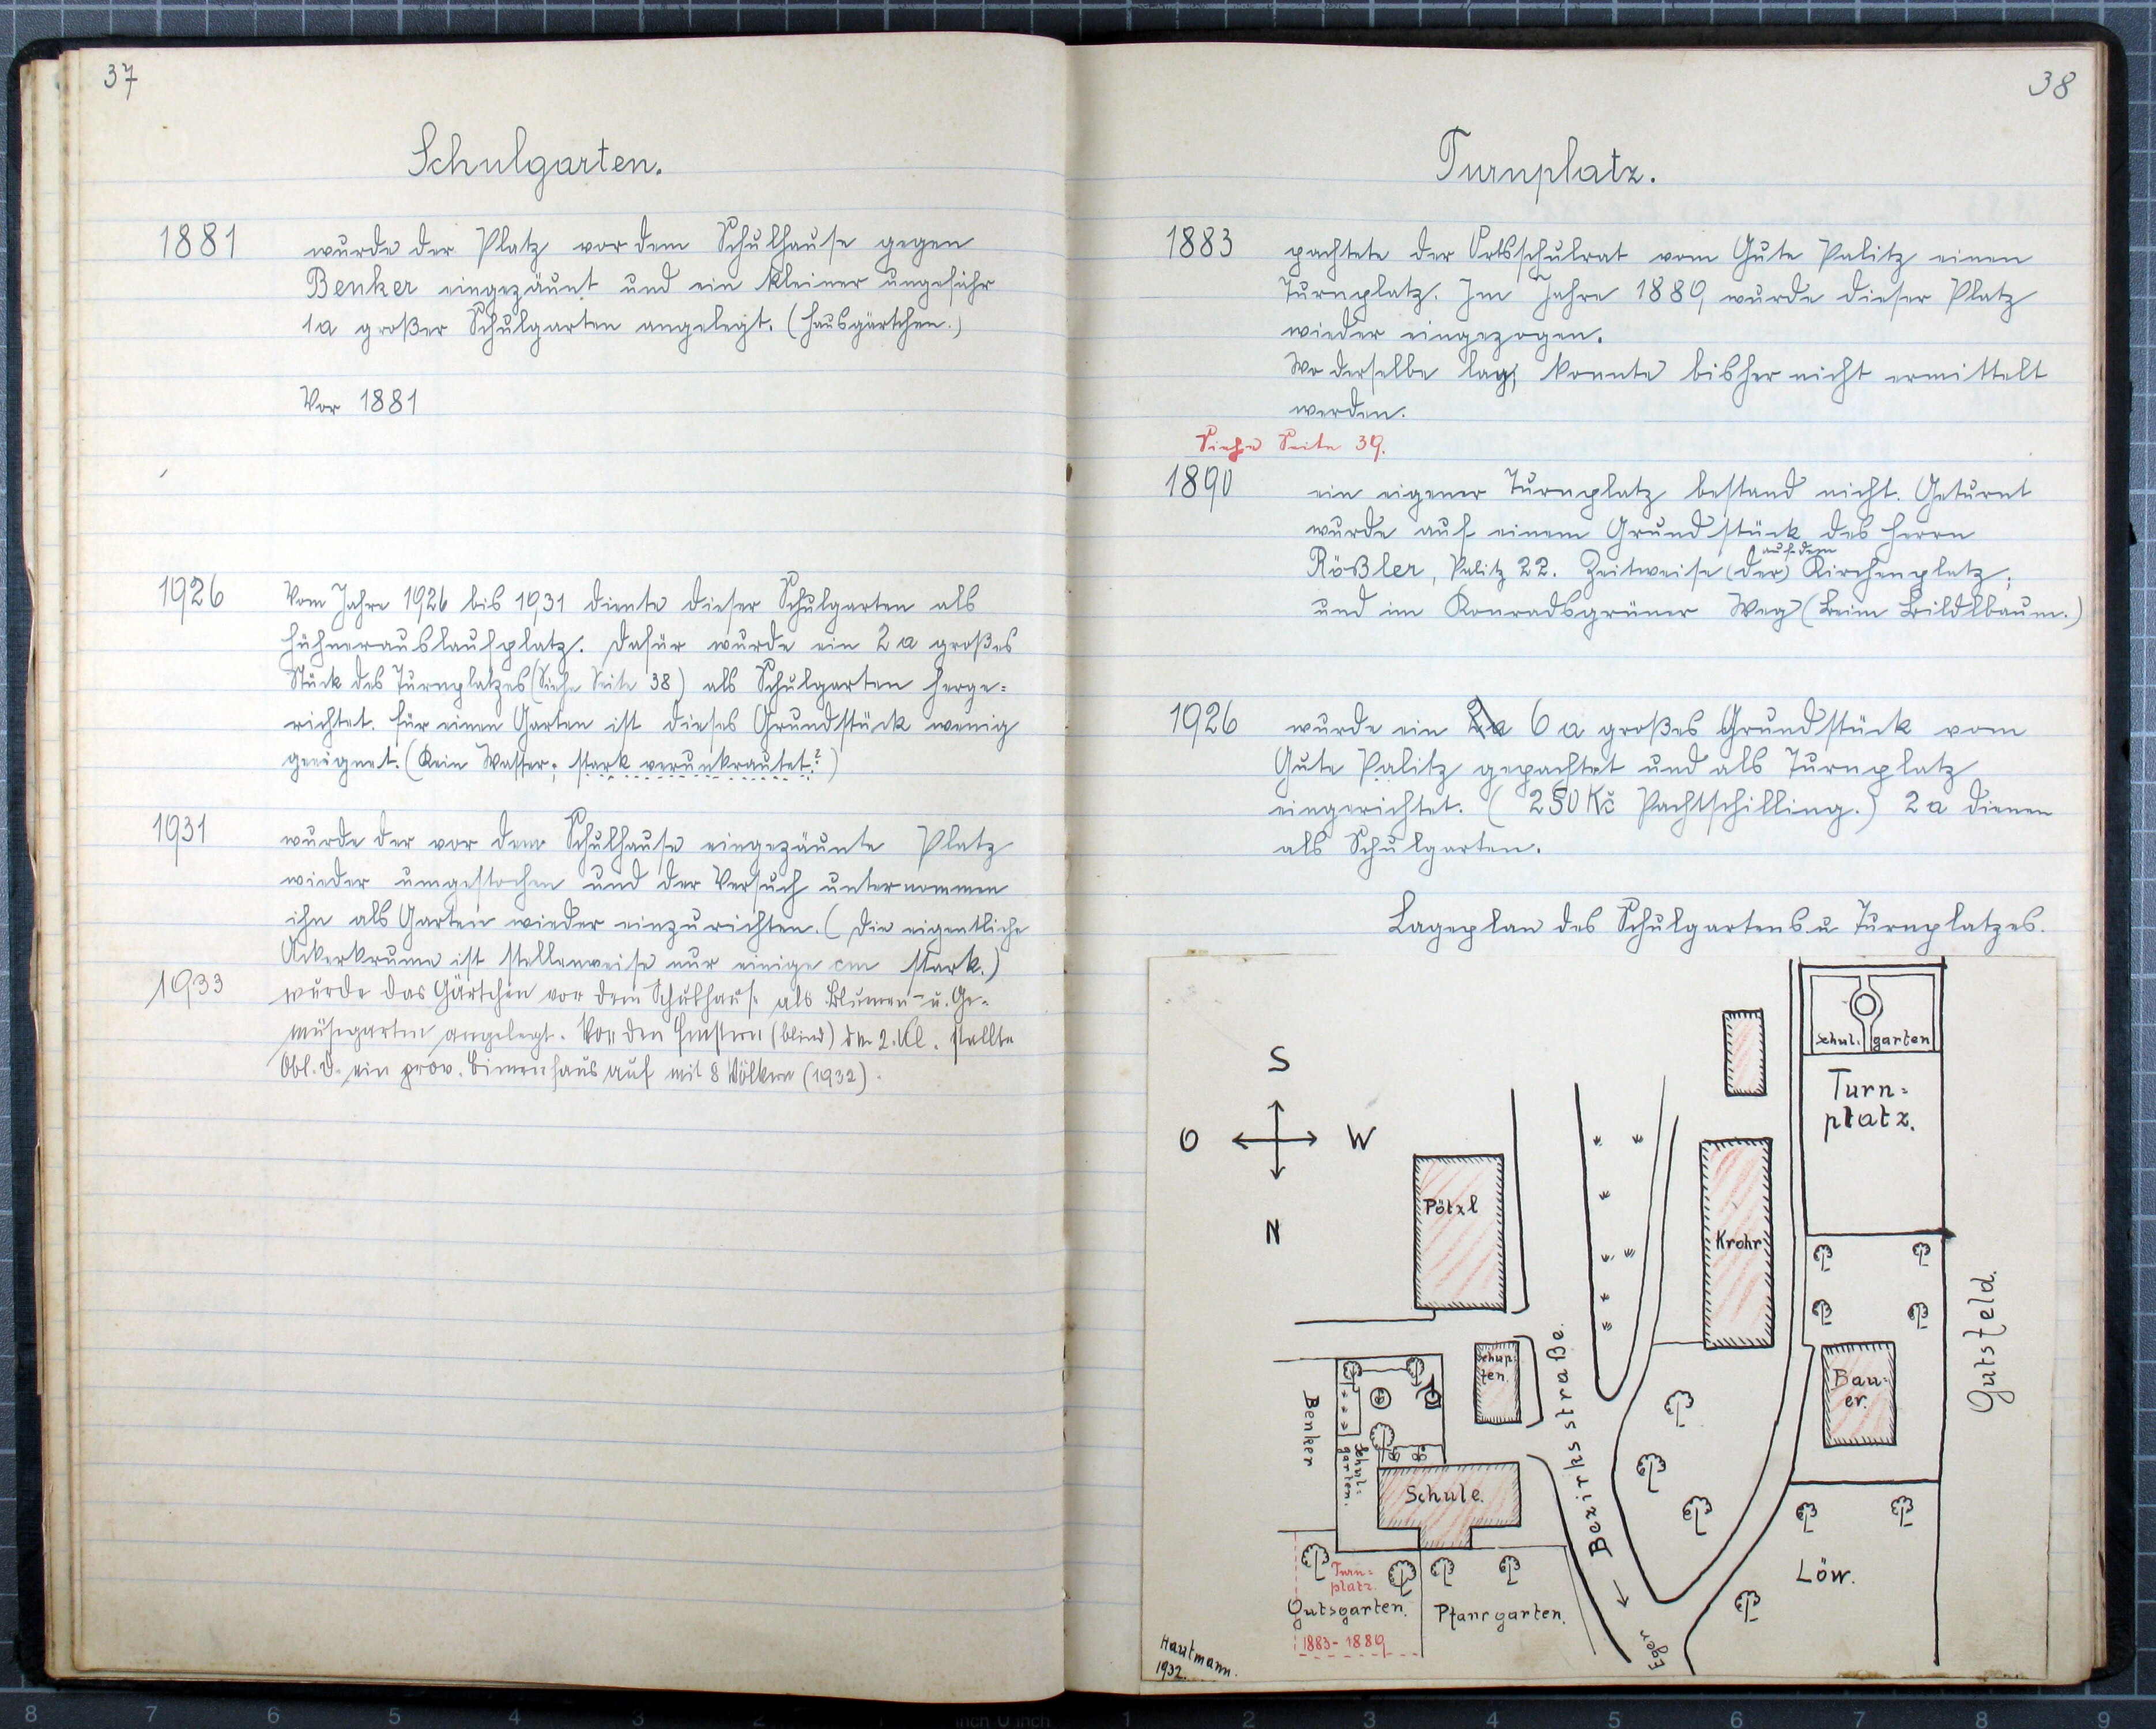 37
Schulgarten.
1881 wurde der Platz vor dem Schulhause gegen
Benker eingezäunt und ein kleiner ungefähr
1a großer Schulgarten angelegt. (Hausgärtchen.)
Vor 1881
1926 Vom Jahre 1926 bis 1931 diente dieser Schulgarten als
Hühnerauslaufplatz. Dafür wurde ein 2 a großes
Stück des Turnplatzes (Siehe Seite 38) als Schulgarten herge=
richtet. Für einen Garten ist dieses Grundstück wenig
geeignet. (Kein Wasser, stark verunkrautet.?)
1931 wurde der vor dem Schulhause eingezäunte Platz
wieder umgestochen und der Versuch unternommen
ihn als Garten wieder einzurichten. (Die eigentliche
Ackerkrume ist stellenweise nur einige cm stark.)
1933 wurde das Gärtchen vor dem Schulhause als Blumen- u. Ge-
müsegarten angelegt. Vor den Fenstern (blind) der 2. Kl. stellte
Obl. D. ein prov. Bienenhaus auf mit 8 Völkern (1932).
38
Turnplatz.
1883 pachtete der Ortsschulrat vom Gute Palitz einen
Turnplatz. Im Jahre 1889 wurde dieser Platz
wieder eingezogen.
Wo derselbe lag, konnte bisher nicht ermittelt
werden.
Siehe Seite 39.
1890 ein eigener Turnplatz bestand nicht. Geturnt
wurde auf einem Grundstück des Herrn
auf dem
Rößler, Palitz 22. Zeitweise (der) Kirchenplatz,
und im Konradsgrüner Weg (Beim Bildlbaum.)
1926 wurde ein 2a 6 a großes Grundstück vom
Gute Palitz gepachtet und als Turnplatz
eingerichtet. (250 Kč Pachtschilling.) 2 a dienen
als Schulgarten.
Lageplan des Schulgartens u. Turnplatzes.
Schul. garten
Turn=
platz.
S
O W
N
Pötzl
Krohr
Gutsfeld.
Schup-
fen.
Bau-
er.
Bezirksstraße.
Benker
Schul=
garten.
Schule.
Turn=
platz.
Löw.
Gutsgarten. Pfarrgarten.
1883-1889
Eger
Hautmann.
1932.